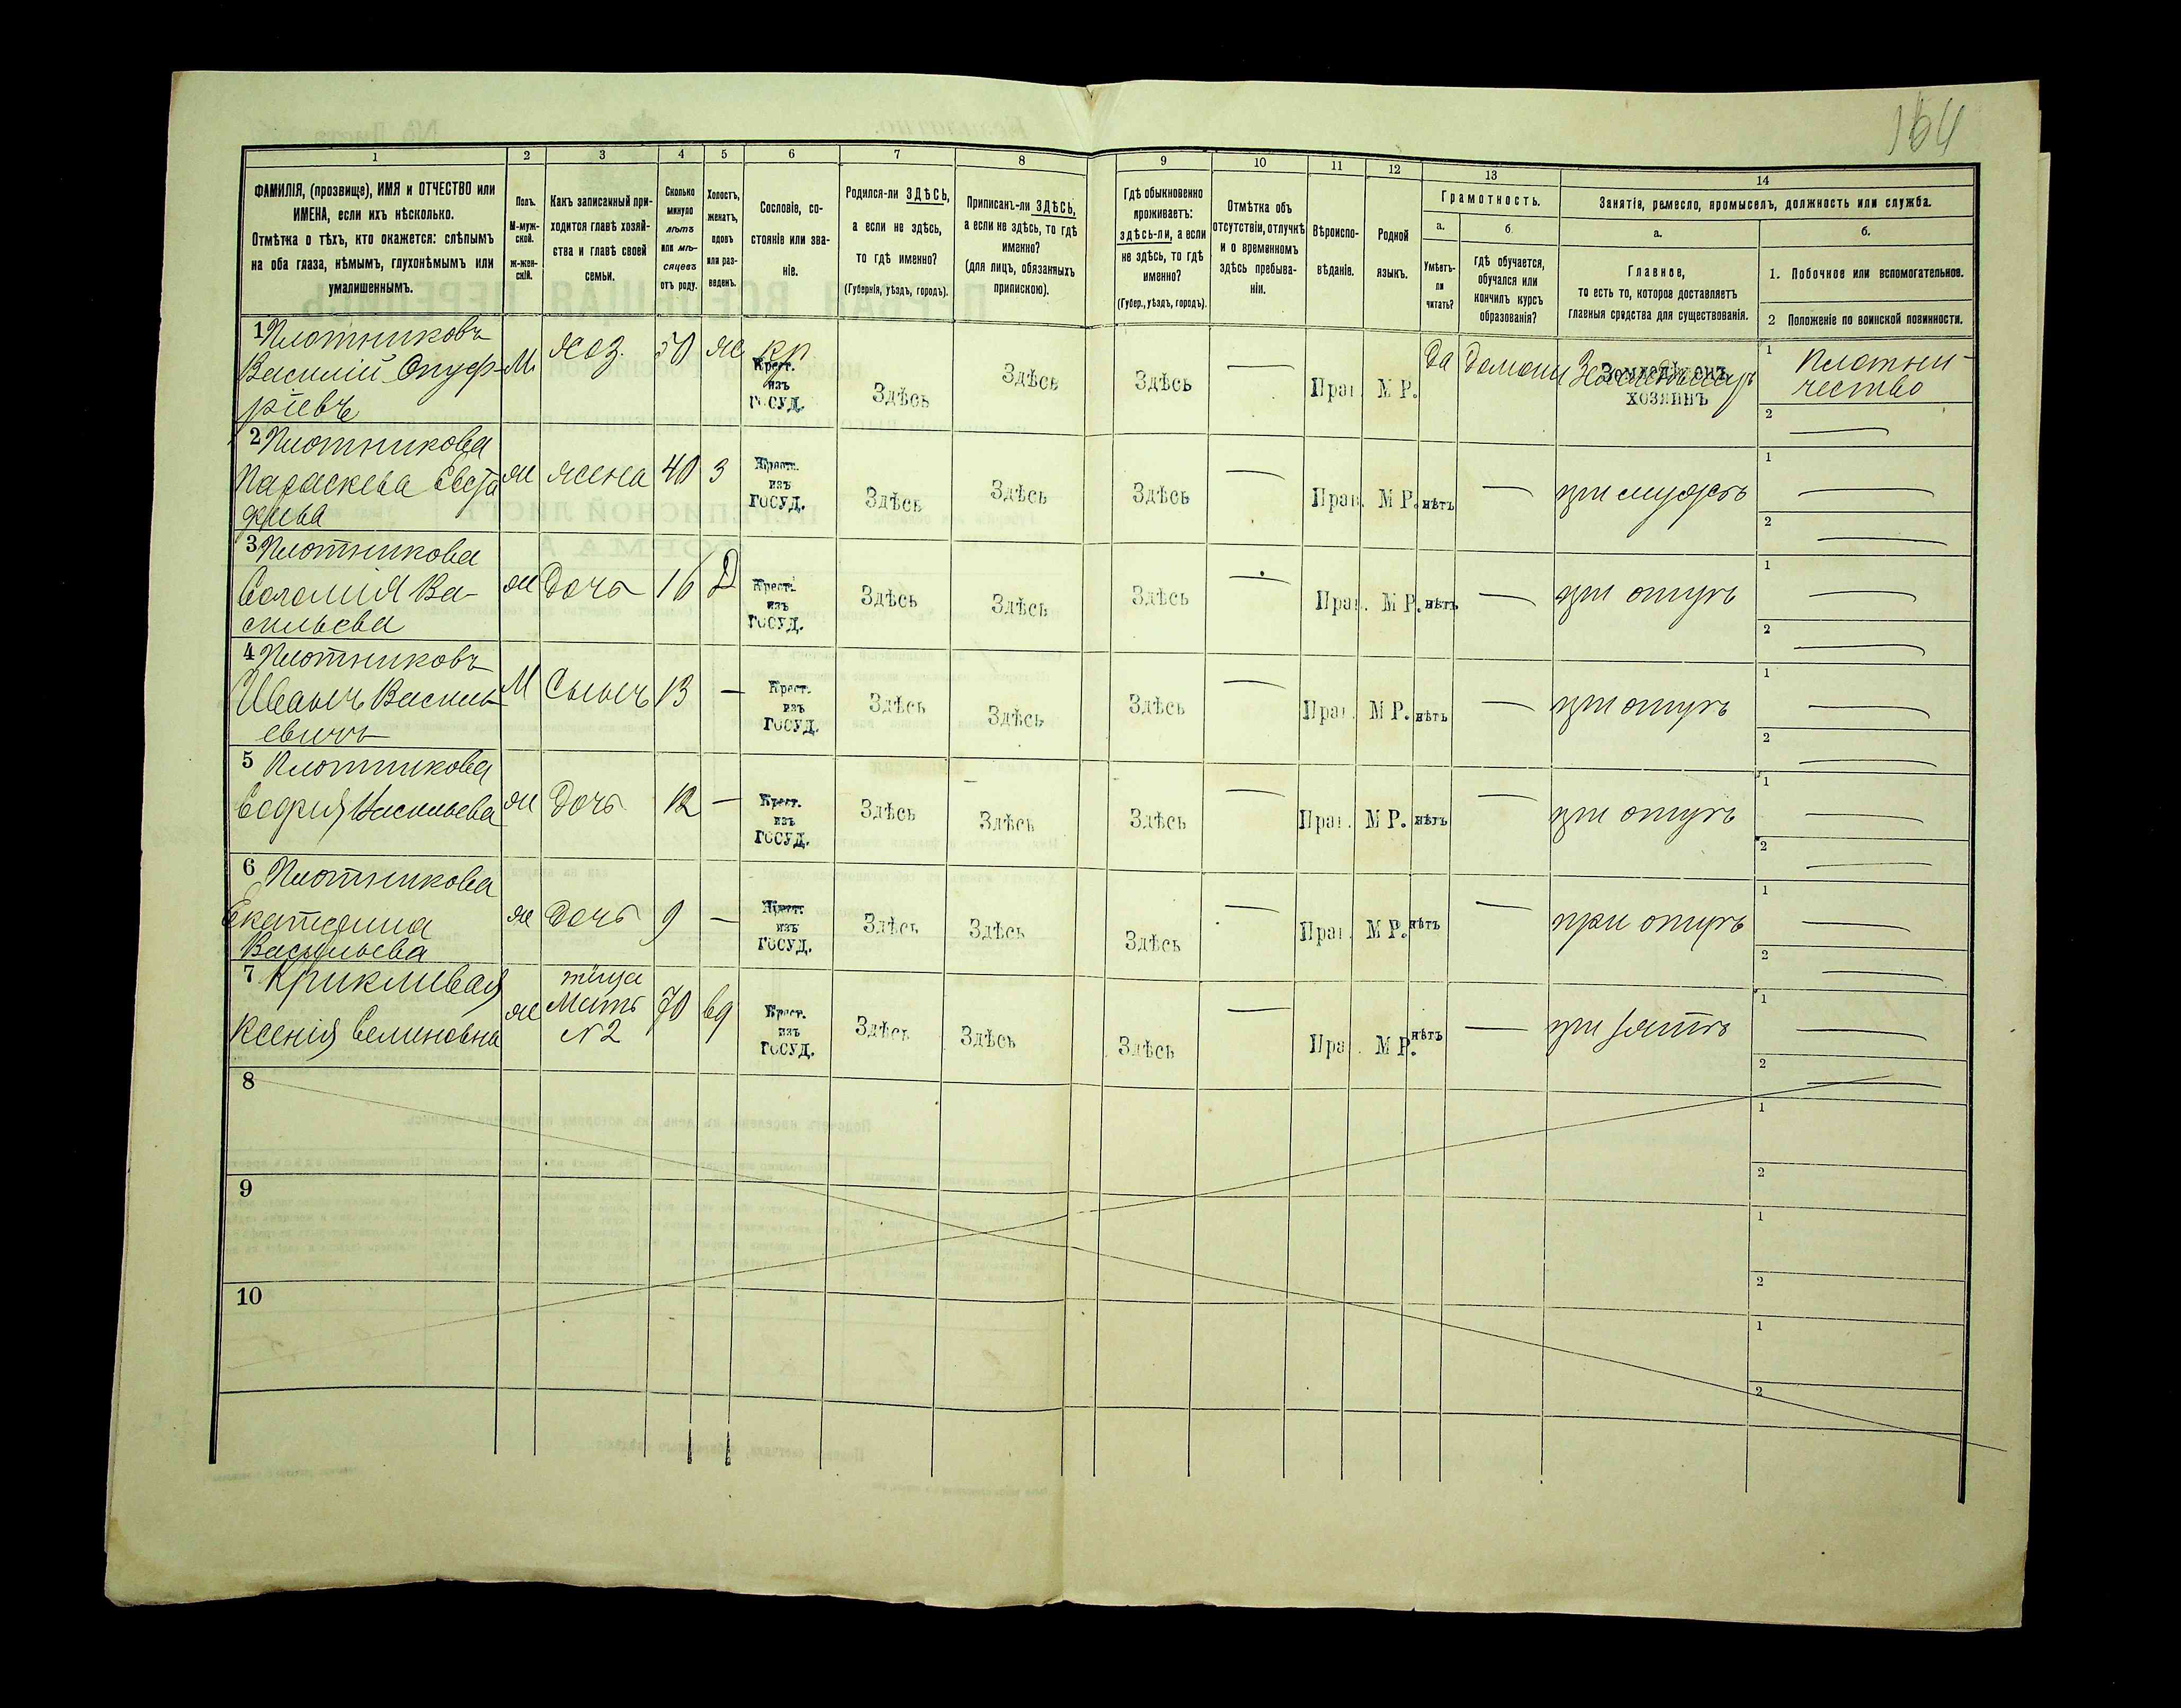 164
1 2 3 4 5 6 7 8 9 10 11 12 13 14
ФАМИЛІЯ, (прозвище), ИМЯ и ОТЧЕСТВО или
ИМЕНА, если ихъ нѣсколько.
Отмѣтка о тѣхъ, кто окажется: слѣпымъ
на оба глаза, нѣмымъ, глухонѣмымъ или
умалишеннымъ.
Полъ.
М-муж-
ской.
Ж-жен-
скій.
Какъ записанный при-
ходится главѣ хозяй-
ства и главѣ своей
семьи.
Сколько
минуло
лѣтъ
или мѣ-
сяцевъ
отъ роду.
Холостъ,
женатъ,
вдовъ
или раз-
веденъ.
Сословіе, со-
стояніе или зва-
ніе.
Родился-ли ЗДѢСЬ,
а если не здѣсь,
то гдѣ именно?
(Губернія, уѣздъ, городъ).
Приписанъ-ли ЗДѢСЬ,
а если не здѣсь, то гдѣ
именно?
(для лицъ, обязанныхъ
припискою).
Гдѣ обыкновенно
проживаетъ:
здѣсь-ли, а если
не здѣсь, то гдѣ
именно?
(Губер., уѣздъ, городъ).
Отмѣтка объ
отсутствіи, отлучкѣ
и о временномъ
здѣсь пребыва-
ніи.
Вѣроиспо-
вѣданіе.
Родной
языкъ.
Грамотность.
а.
Умѣетъ-
ли
читать?
б.
гдѣ обучается,
обучался или
кончилъ курсъ
образованія?
Занятіе, ремесло, промыселъ, должность или служба.
а.
Главное,
то есть то, которое доставляетъ
главныя средства для существованія.
б.
1. Побочное или вспомогательное.
2 Положеніе по воинской повинности.
1 Плотниковъ
Василій Онуф-
ріевъ
М. Хоз. 50 ж кр
Крест.
изъ
ГОСУД.
Здѣсь Здѣсь Здѣсь — Прав. М Р. Да Домаш
Земледѣлецъ
хозяинъ
1 Плотни-
чество
2 —
2 Плотникова
Параскева Евста
фиева
ж жена 40 З
Крест.
изъ
ГОСУД.
Здѣсь Здѣсь Здѣсь — Прав. М Р. нѣтъ — при мужѣ
1 —
2 —
3 Плотникова
Соломія Ва-
сильева
ж Дочь 16 Д
Крест.
изъ
ГОСУД.
Здѣсь Здѣсь Здѣсь — Прав. М Р. нѣтъ — при отцѣ
1 —
2 —
4 Плотниковъ
Иванъ Василь
евичъ
М Сынъ 13 —
Крест.
изъ
ГОСУД.
Здѣсь Здѣсь Здѣсь — Прав. М Р. нѣтъ — при отцѣ
1 —
2 —
5 Плотникова
Софія Васильева
ж Дочь 12 —
Крест.
изъ
ГОСУД.
Здѣсь Здѣсь Здѣсь — Прав. М Р. нѣтъ — при отцѣ
1 —
2 —
6 Плотникова
Екатерина
Васильева
ж Дочь 9 —
Крест.
изъ
ГОСУД.
Здѣсь Здѣсь Здѣсь — Прав. М Р. нѣтъ — при отцѣ
1 —
2 —
7 Крикливая
Ксенія Семиновна
ж
тёща
Мать
N 2
70 вд
Крест.
изъ
ГОСУД.
Здѣсь Здѣсь Здѣсь — Пра. М Р. нѣтъ — при зятѣ
1 —
2 —
8
1
2
9
1
2
10
1
2